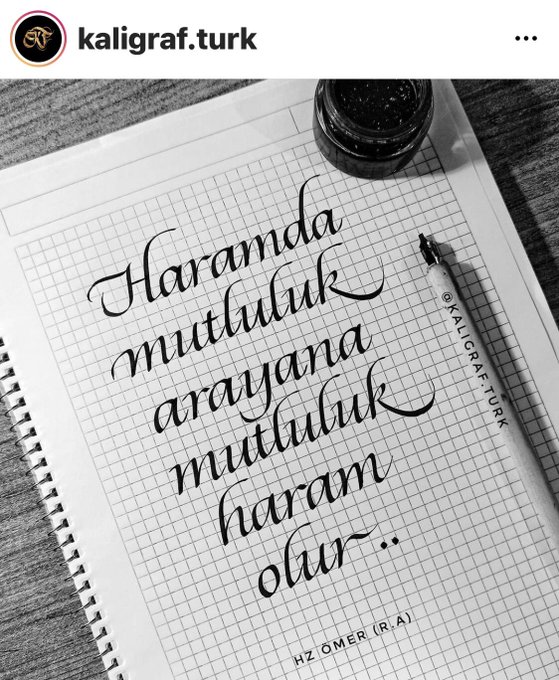 kaligraf.turk
Haramda
mutluluk
arayana
mutluluk
haram
olur..
@KALIGRAF.TURK
HZ ÖMER (R.A)